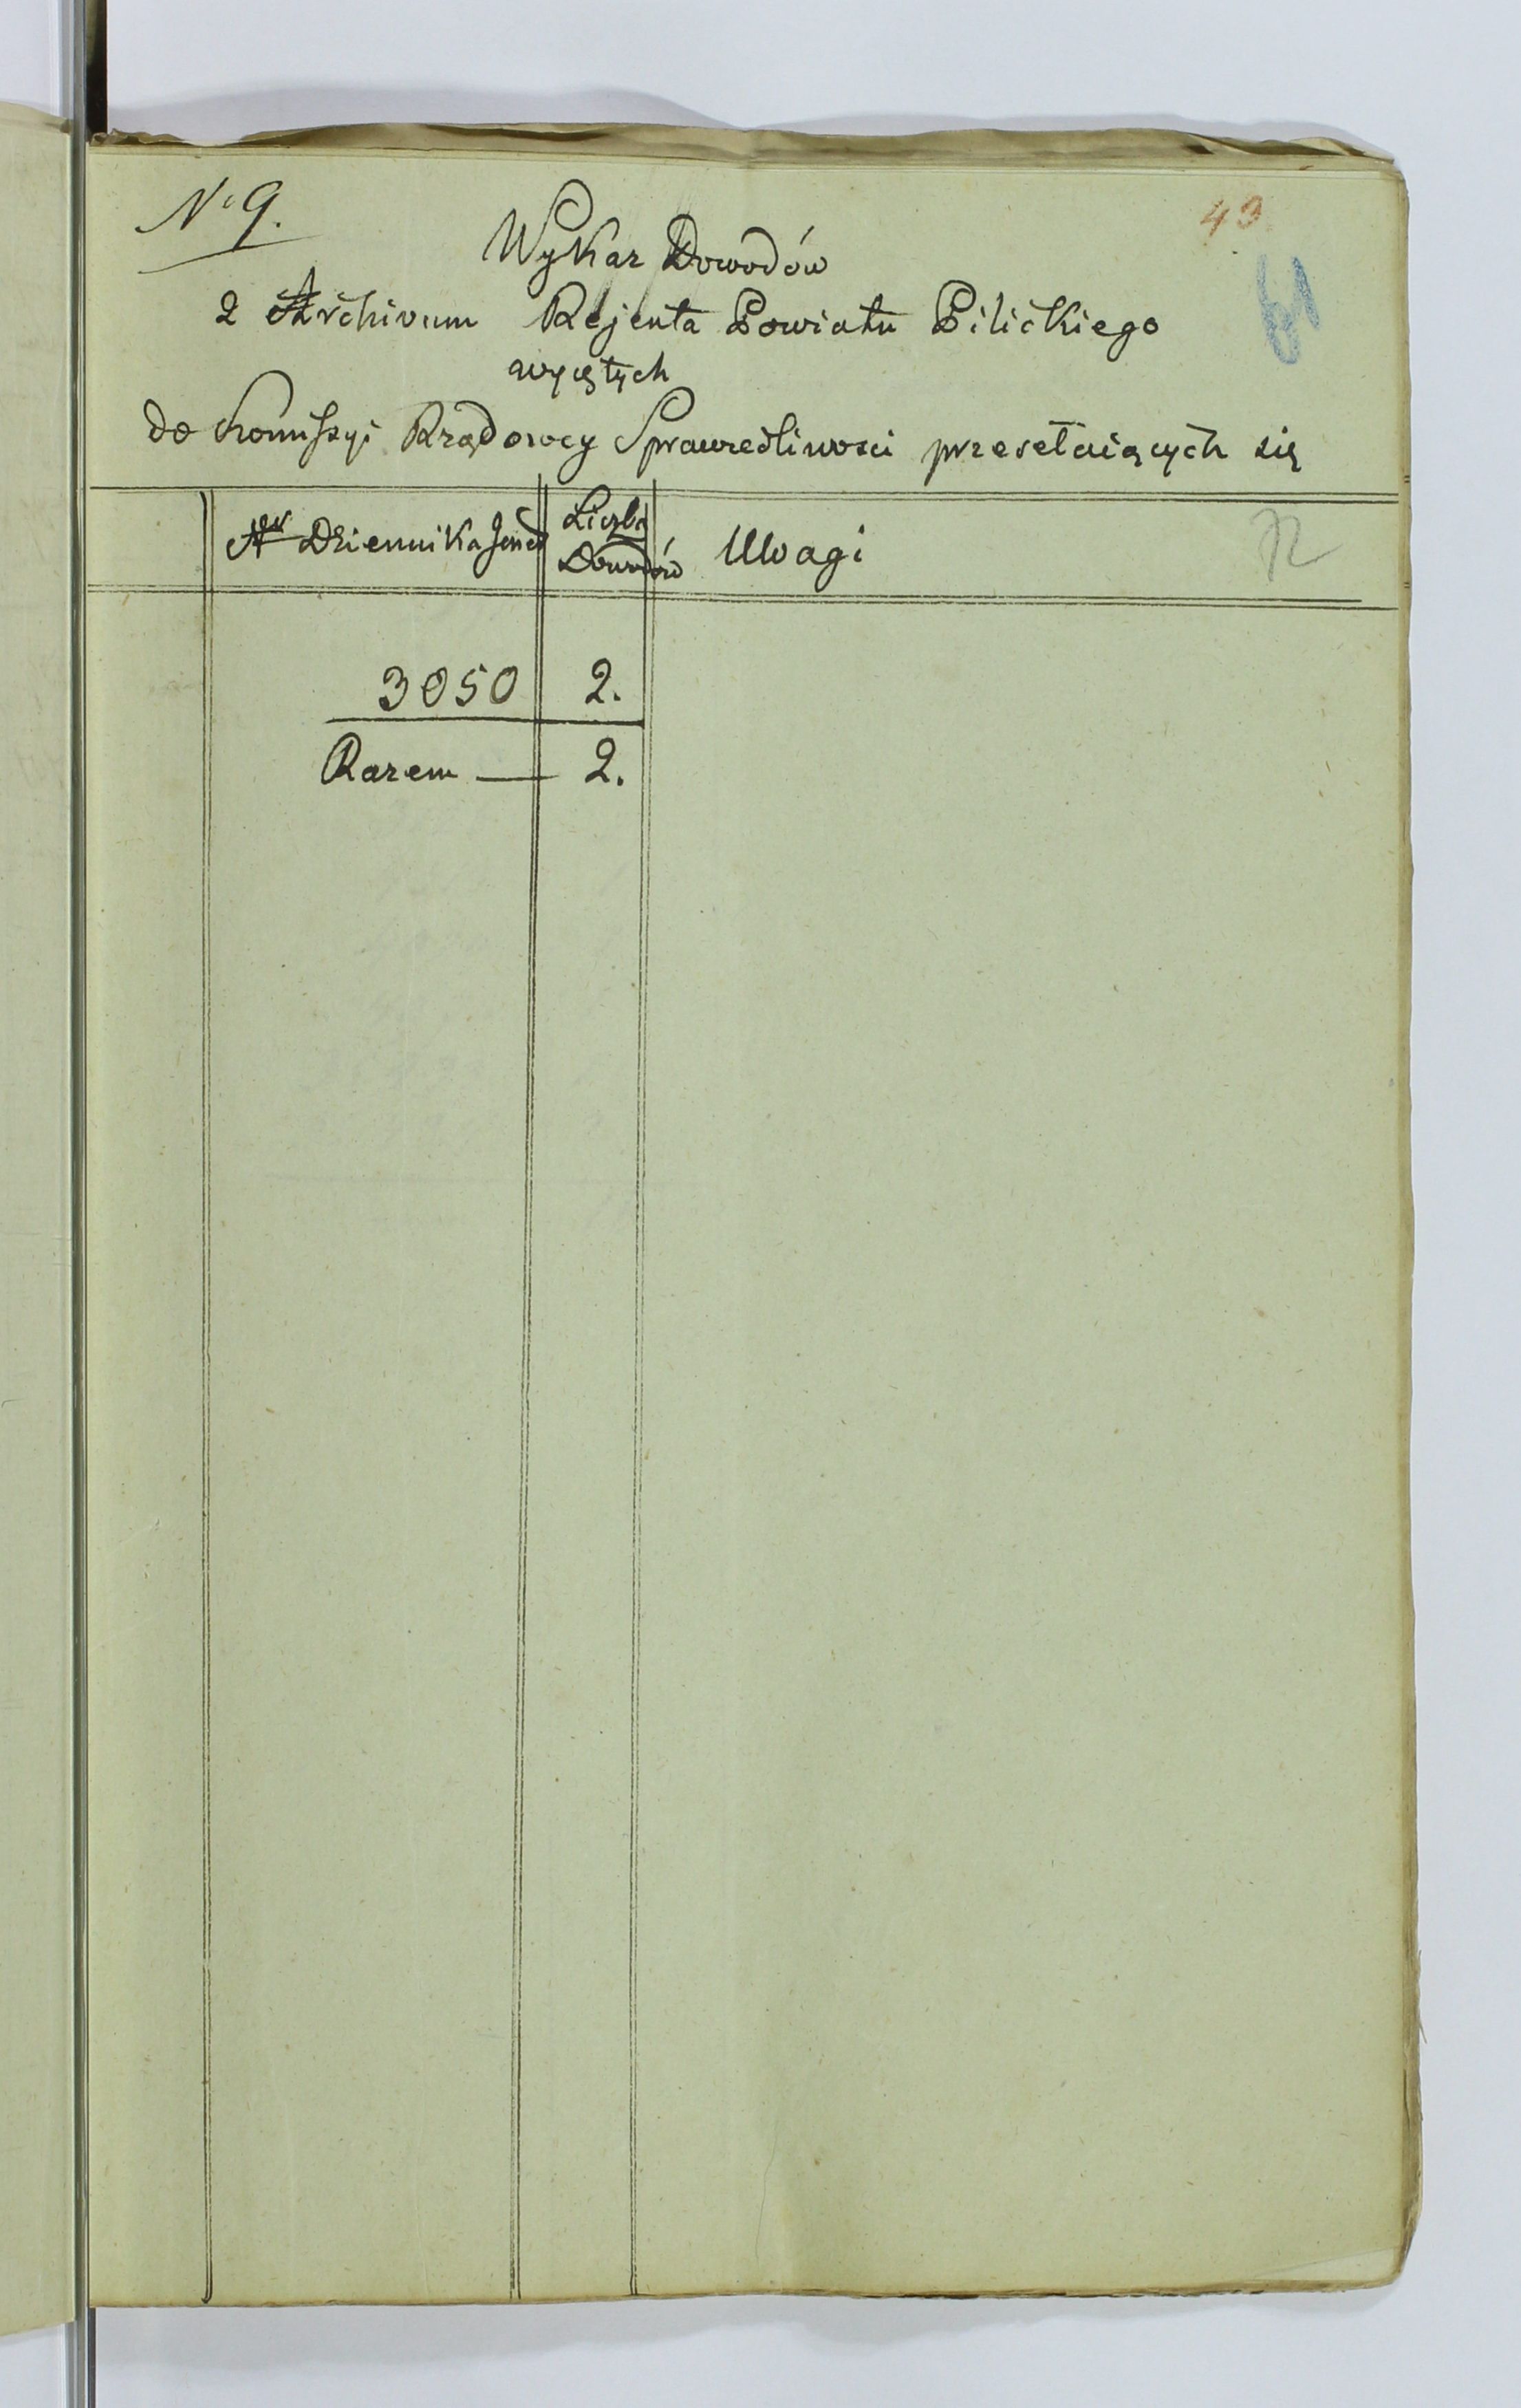 No 9.
43
Wykaz Dowodów
z Archivum Rejenta Powiatu Pilickiego
61
wyiętych
do Kommissyi Rządowey Sprawiedliwości przesełaiących się
Nr Dziennika
Liczba
Dowodów
Uwagi
72
3050 2.
Razem — 2.